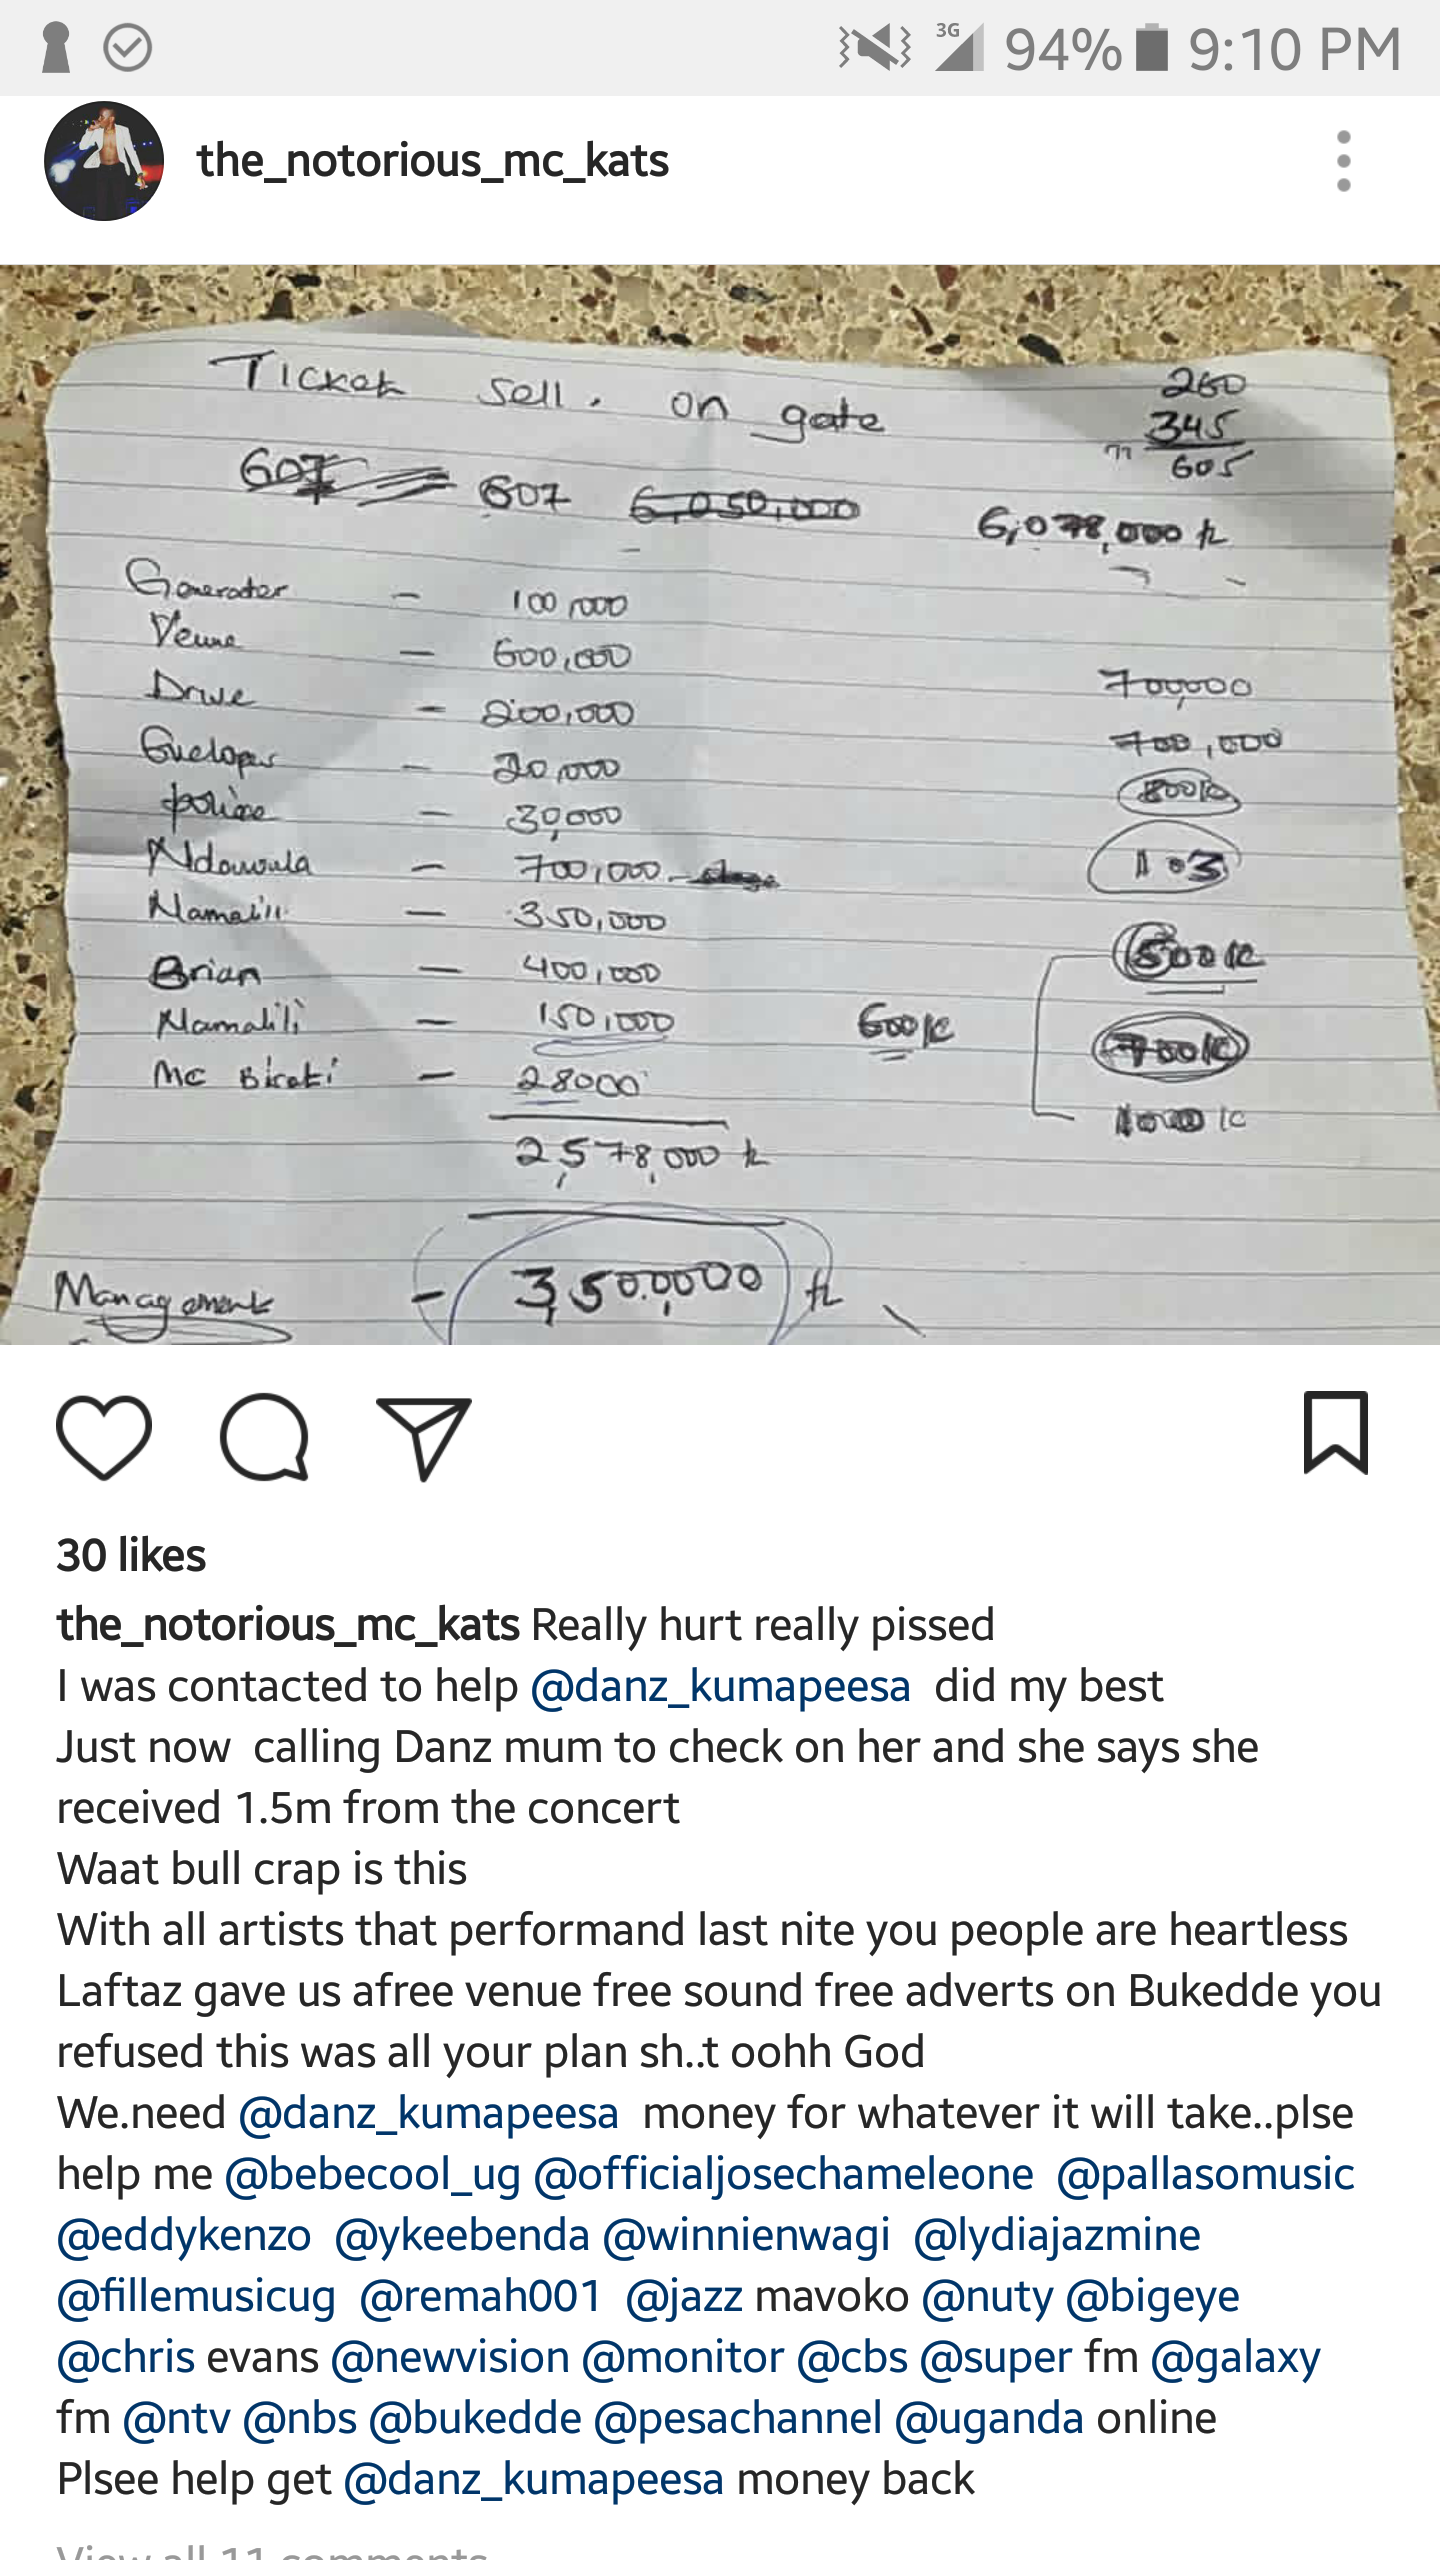 3G 94% 9:10 PM
the_notorious_mc_kats
Ticket sell. on gate
260
345
605
607 607 6,050,000 6,078,000
Generator - 100,000
Venue - 600,000
Drive - 200,000
700,000
Envelopes - 20,000
700,000
police - 30,000
800k
Ndawula - 700,000
1.3
Namalili - 350,000
500k
Brian - 400,000
Namalili - 150,000
600k
700k
Mc - 28000
2,578,000
Management - 3,500,000
30 likes
the_notorious_mc_kats Really hurt really pissed
I was contacted to help @danz_kumapeesa did my best
Just now calling Danz mum to check on her and she says she
received 1.5m from the concert
Waat bull crap is this
With all artists that performand last nite you people are heartless
Laftaz gave us afree venue free sound free adverts on Bukedde you
refused this was all your plan sh..t oohh God
We.need @danz_kumapeesa money for whatever it will take..plse
help me @bebecool_ug @officialjosechameleone @pallasomusic
@eddykenzo @ykeebenda @winnienwagi @lydiajazmine
@fillemusicug @remah001 @jazz mavoko @nuty @bigeye
@chris evans @newvision @monitor @cbs @super fm @galaxy
fm @ntv @nbs @bukedde @pesachannel @uganda online
Plsee help get @danz_kumapeesa money back
View all 11 comments